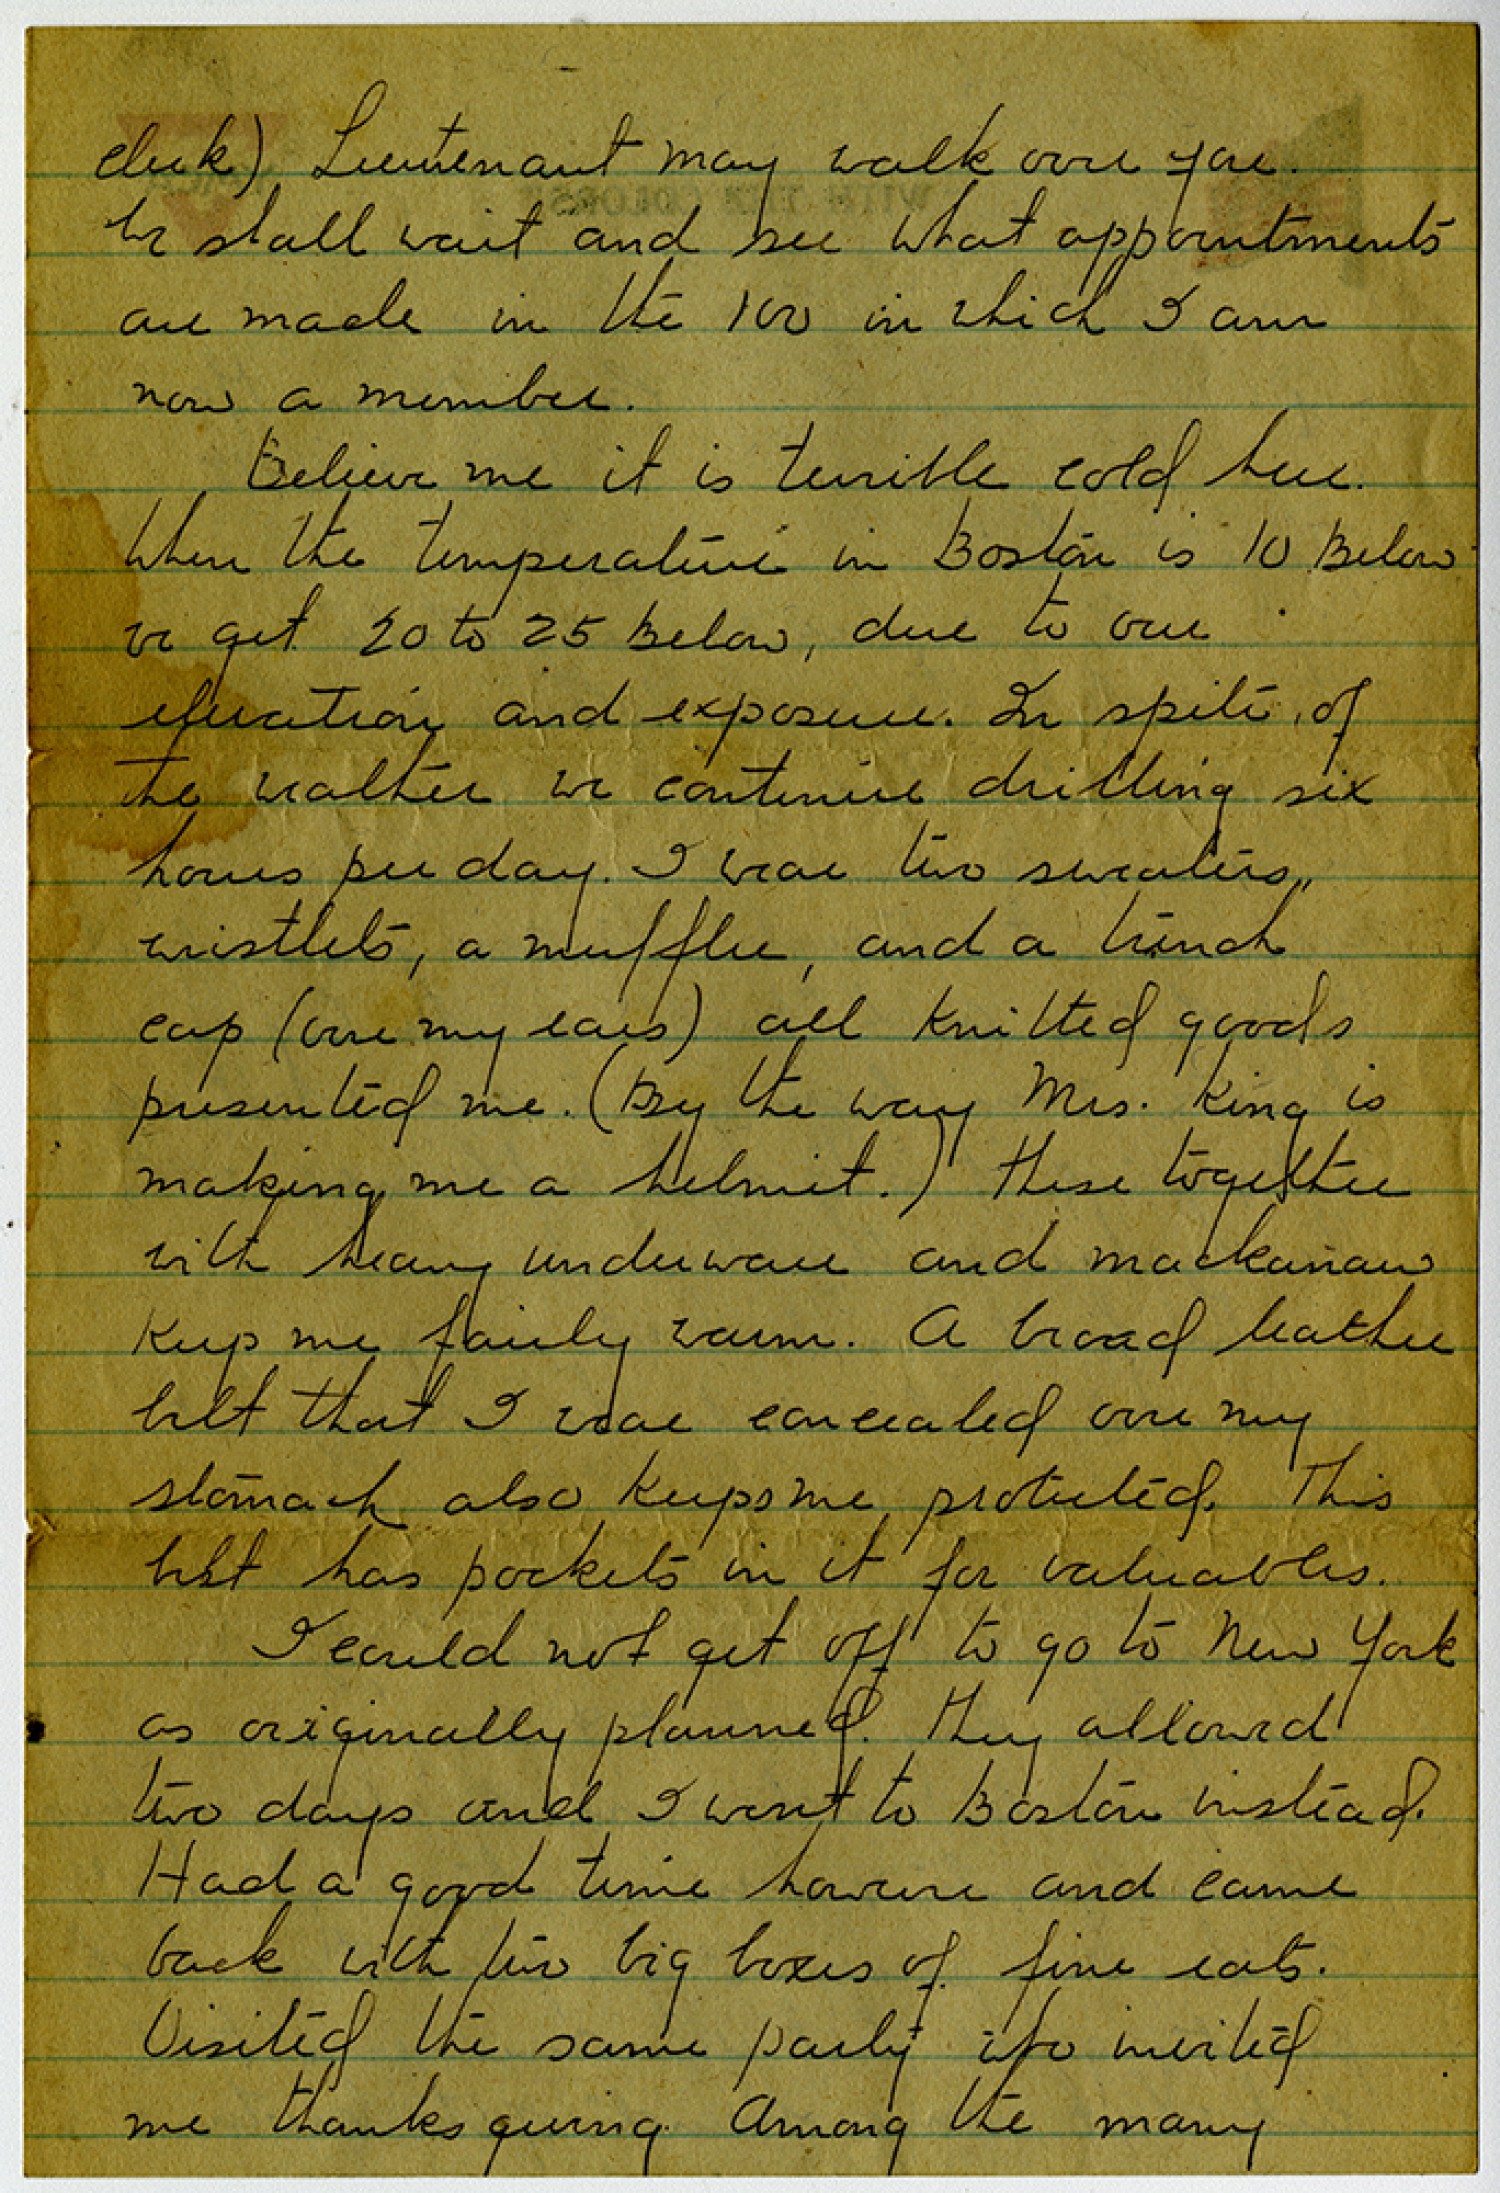 clerk) Lieutenant may walk over you.
We shall wait and see what appointments
are made in the 100 in which I am
now a member.
Believe me it is terrible cold here.
When the temperature in Boston is 10 Below
we get 20 to 25 Below, due to our
elevation and exposure. In spite of
the weather we continue drilling six
hours per day. I wear two sweaters,,
wristlets, a muffler, and a trench
cap (over my ears) all knitted goods
presented me. (By the way Mrs. King is
making me a helmit.) These together
with heavy underwear and mackanaw
keep me fairly warm. A broad leather
belt that I wear concealed over my
stomach also keeps me protected. This
belt has pockets in it for valuables.
I could not get off to go to New York
as originally planned. They allowed
two days and I went to Boston instead.
Had a good time however and came
back with two big boxes of fine eats.
Visited the same party who invited
me thanksgiving. Among the many
WITH THE COLORS